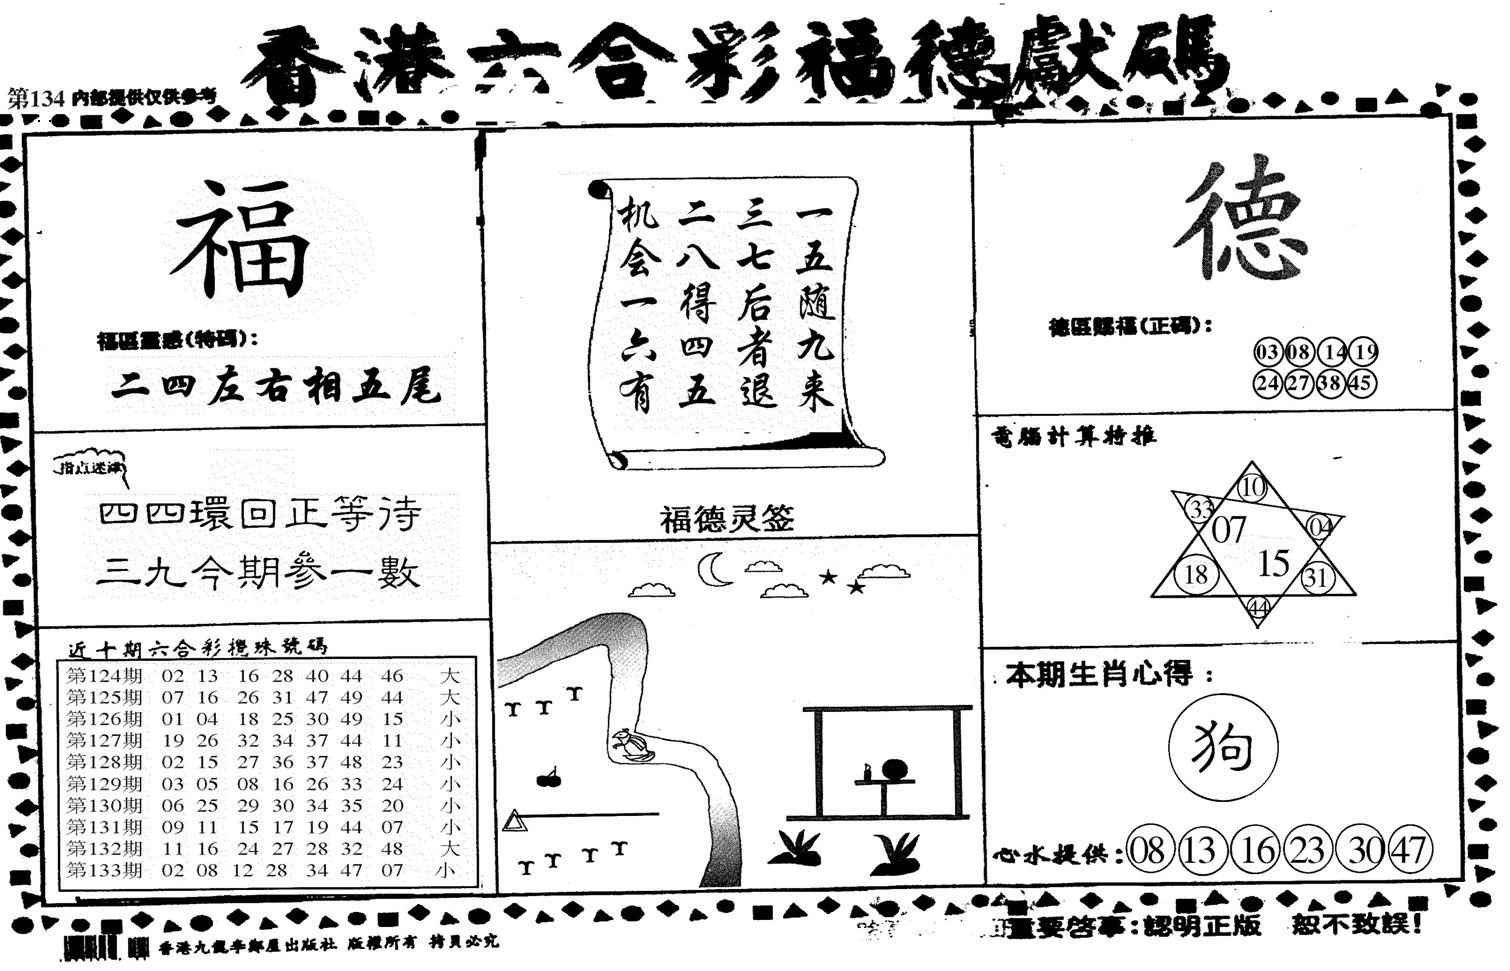 香港六合彩福德獻碼
第134 內部提供仅供參考
福
福區靈感(特碼):
二四左右相五尾
指点迷津
四四環回正等待
三九今期參一數
近十期六合彩攪珠號碼
第124期 02 13 16 28 40 44 46 大
第125期 07 16 26 31 47 49 44 大
第126期 01 04 18 25 30 49 15 小
第127期 19 26 32 34 37 44 11 小
第128期 02 15 27 36 37 48 23 小
第129期 03 05 08 16 26 33 24 小
第130期 06 25 29 30 34 35 20 小
第131期 09 11 15 17 19 44 07 小
第132期 11 16 24 27 28 32 48 大
第133期 02 08 12 28 34 47 07 小
一五随九来
三七后者退
二八得四五
机会一六有
福德灵签
德
德區賜福(正碼):
03 08 14 19
24 27 38 45
電腦計算特推
10
33 07 04
18 15 31
44
本期生肖心得:
狗
心水提供: 08 13 16 23 30 47
重要啓事:認明正版 恕不致誤!
出版社 版權所有 拷貝必究